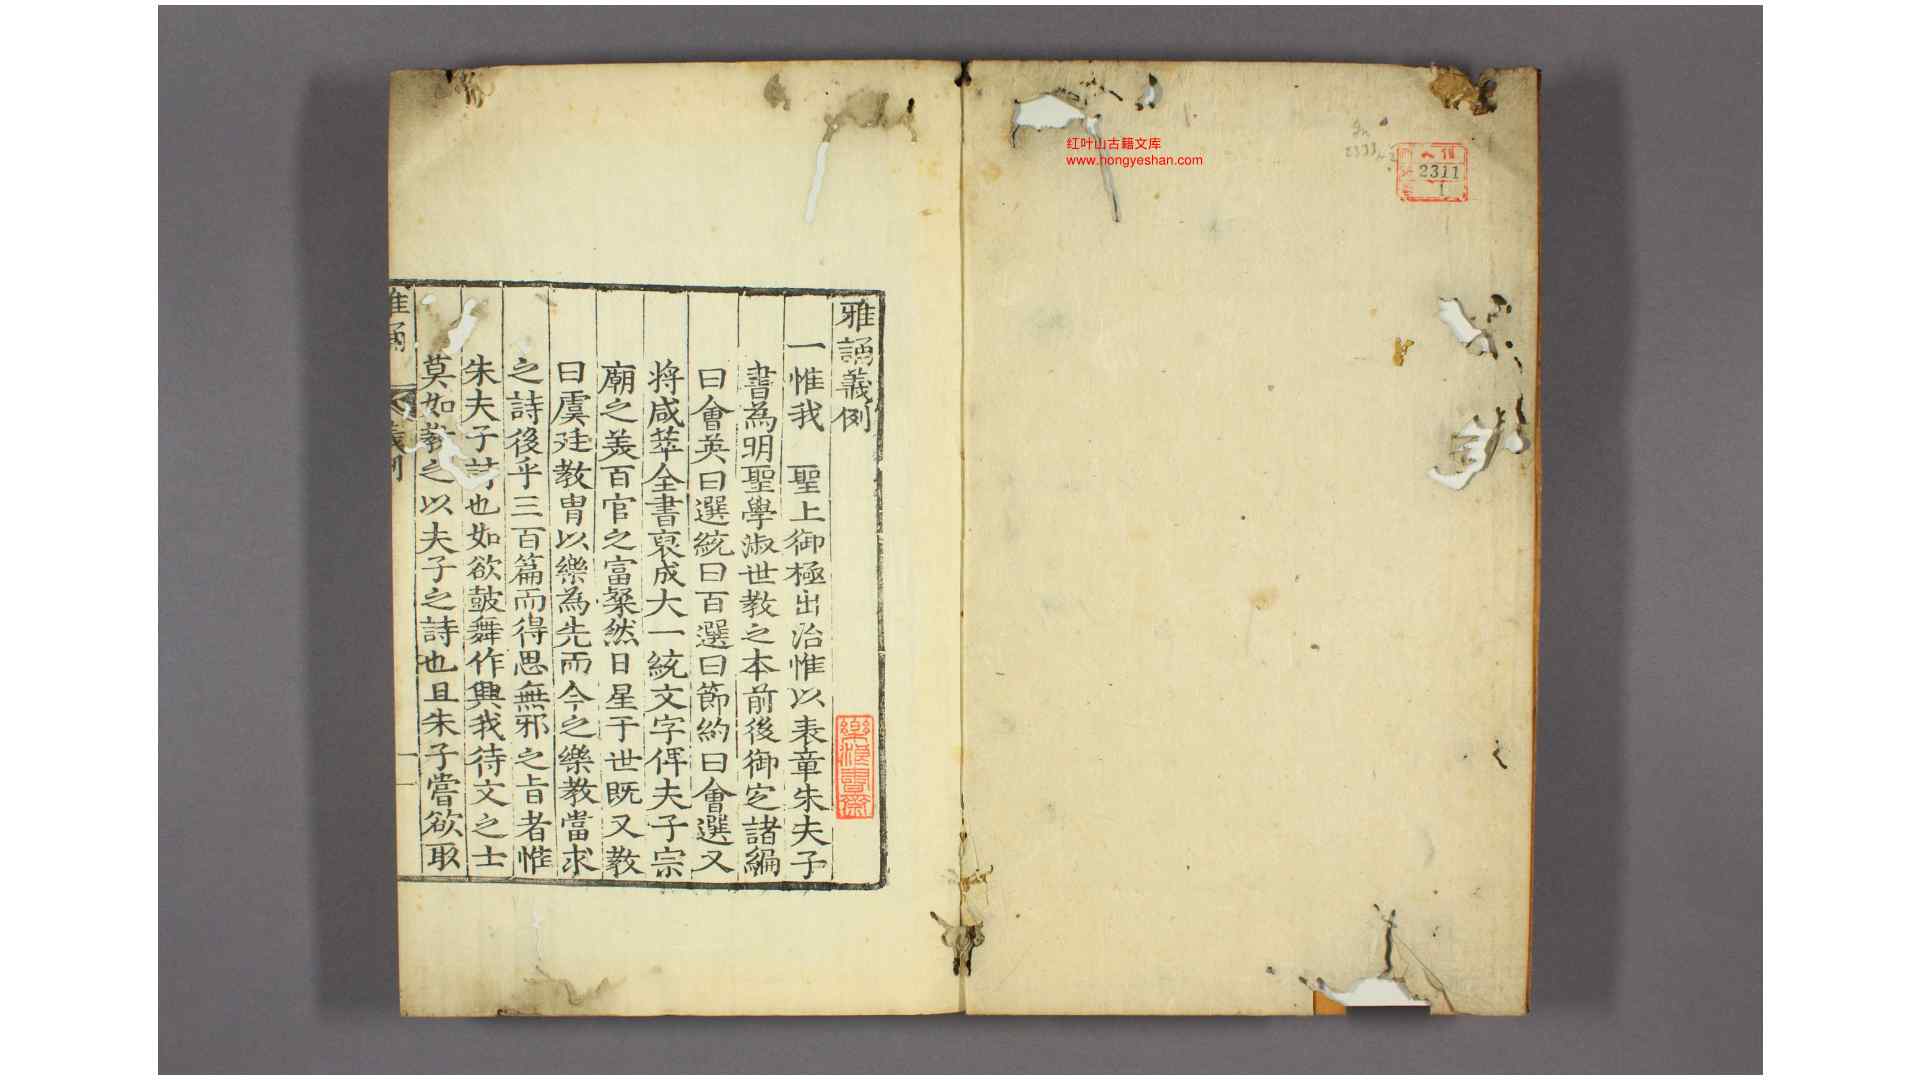 红叶山古籍文库
www.hongyeshan.com
2311
1
雅誦義例
一惟我 聖上御極出治惟以表章朱夫子
書為明聖學淑世教之本前後御定諸編
曰會英曰選統曰百選曰節約曰會選又
將咸萃全書裒成大一統文字俾夫子宗
廟之美百官之富粲然日星于世既又教
曰虞廷教胄以樂為先而今之樂教當求
之詩後乎三百篇而得思無邪之旨者惟
朱夫子詩也如欲鼓舞作興我待文之士
莫如教之以夫子之詩也且朱子嘗欲取
雅誦 義例 一